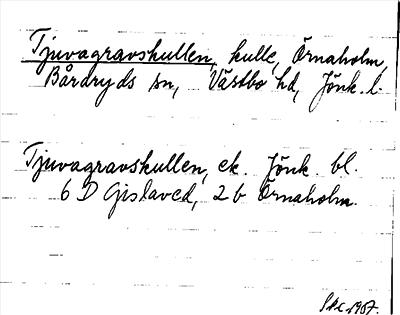 Tjuvagravskullen, kulle, Örnaholm,
Bårdryds sn, Västbo hd, Jönk. l.
Tjuvagravskullen, ek. Jönk. bl.
6 D Gislaved, 2 b Örnaholm.
1967.